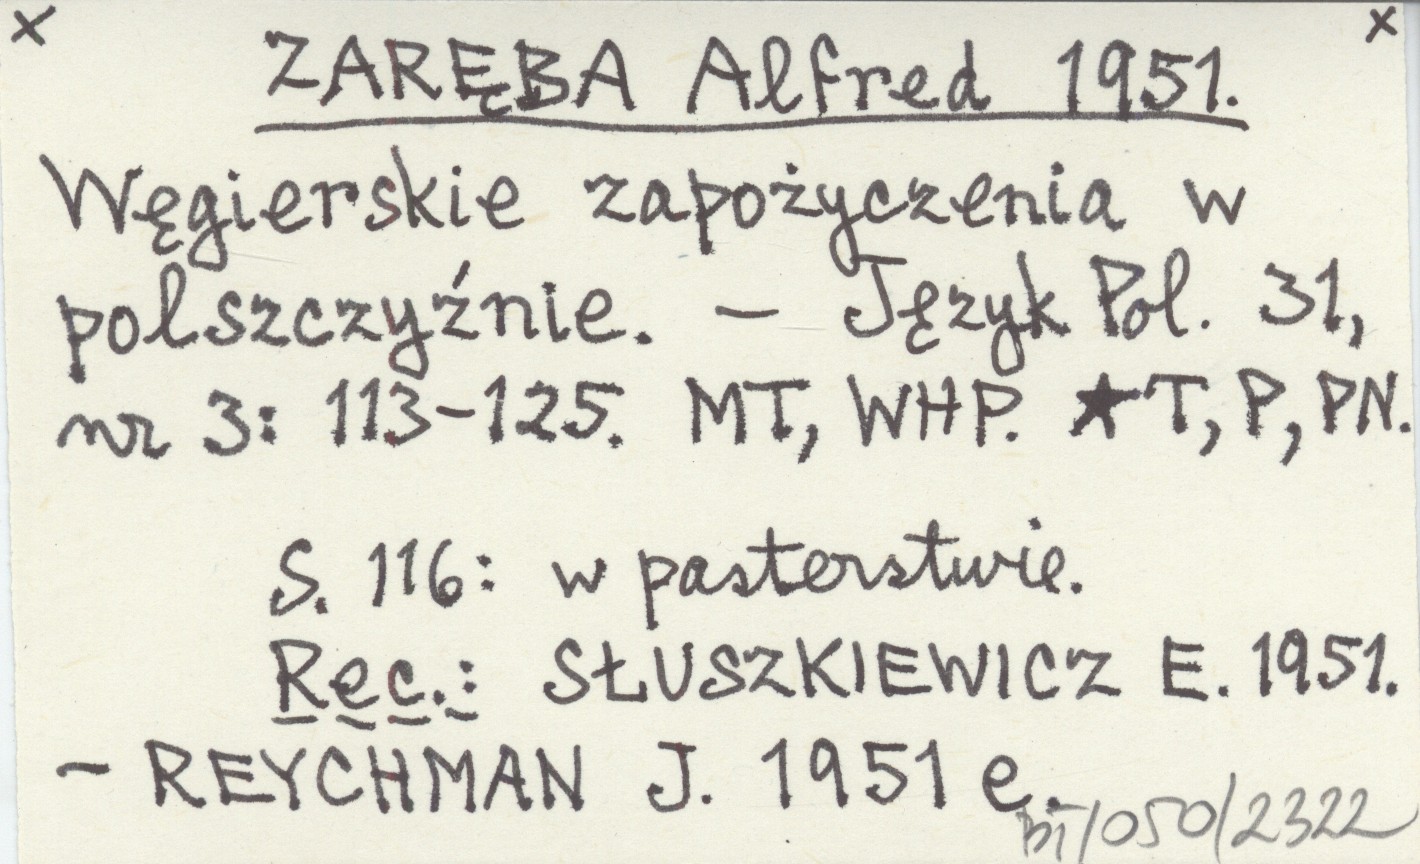 x x
ZARĘBA Alfred 1951.
Węgierskie zapożyczenia w
polszczyźnie. – Język Pol. 31,
nr 3: 113–125. MT, WHP. ★T, P, PN.
S. 116: w pasterstwie.
Rec.: SŁUSZKIEWICZ E. 1951.
– REYCHMAN J. 1951 e.
bi/050/2322